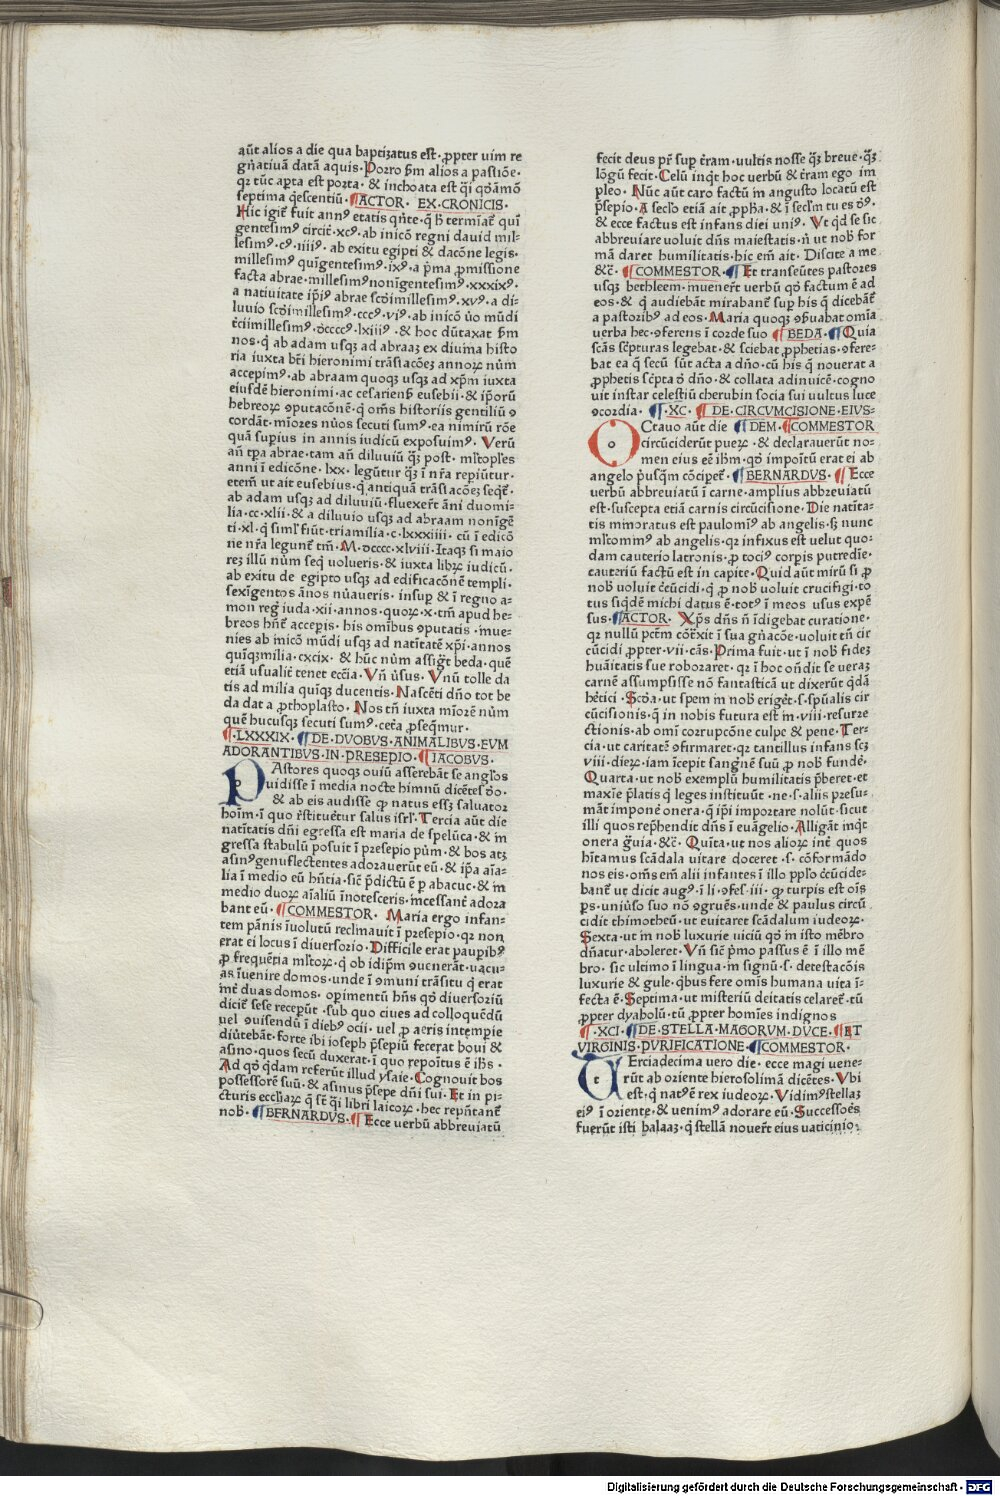 aūt alios a die qua baptizatus est· ꝓpter uim re
gn̄atiuā datā aquis· Porro s̄m alios a passiōe·
qꝛ tūc apta est porta· & inchoata est q̄i qōāmō
septima q̄escentiū· ¶ACTOR· EX·CRONICIS·
Hic igit̄ fuit annꝰ etatis qn̄te· q̄ h̄ termīat̄ qui
gentesimꝰ circit̄·xcꝰ· ab inicō regni dauid mil-
lesimꝰ·cꝰ·iiiiꝰ· ab exitu egipti & dacōne legis·
millesimꝰ quīgentesimꝰ·ixꝰ·a p̄ma ꝓmissione
facta abrae·millesimꝰnonīgentesimꝰ·xxxixꝰ·
a natiuitate ip̄iꝰ abrae scd̄imillesimꝰ·xvꝰ·a di-
luuio scd̄imillesimꝰ·cccꝰ·viꝰ·ab inicō u̇o mūdi
t̄ciimillesimꝰ·dccccꝰ·lxiiiꝰ· & hoc dūtaxat s̄m
nos·q̄ ab adam usqꝫ ad abraaꝫ ex diuina histo
ria iuxta bt̄i hieronimi trāslacōeꝫ annoꝝ nūm
accepimꝰ·ab abraam quoqꝫ usqꝫ ad xp̄m iuxta
eiusdē hieronimi·ac cesarienß eusebii·& ip̄orū
hebreoꝝ ꝯputacōnē·q̄ om̄s historiis gentiliū ꝯ
cordāt·mīores nūos secuti sumꝰ·ea nimirū rōe
quā supius in annis iudicū exposuimꝰ· Verū
an̄ tꝑa abrae·tam an̄ diluuiū qꝫ post· mlt̄oples
anni ī edicōne·lxx·legūtur qꝫ ī nr̄a repiūtur·
etem̄ ut ait eusebius·q̄ antiquā trāslacōeꝫ seqt̄·
ab adam usqꝫ ad diluuiū·fluxer̄t āni duomi-
lia·cc·xlii·& a diluuio usqꝫ ad abraam nonīgē
ti·xl·q̄ siml̄ fiūt·triamilia·c·lxxxiiii· cū ī edicō
ne nr̄a legunt̄ tm̄·M·dcccc·xlviii·Itaqꝫ si maio
reꝫ illū nūm seq̄ volueris·& iuxta libꝝ iudicū·
ab exitu de egipto usqꝫ ad edificacōnē templi·
sexīgentos ānos nūaueris· insuꝑ & ī regno a-
mon reḡ iuda·xii·annos·quoꝝ·x·tm̄ apud he-
breos hn̄t̄ accepis·his omībus ꝯputatis·inue-
nies ab inicō mūdi usqꝫ ad natītatē xp̄i·annos
quīqꝫmilia·cxcix· & hūc nūm assiḡt beda·quē
etiā usualit̄ tenet ecc̄ia·Vn̄ u̇sus· Vnū tolle da
tis ad milia quīqꝫ ducentis·Nascēti dn̄o tot be
da dat a ꝓthoplasto· Nos tn̄ iuxta mīorē nūm
quē hucusqꝫ secuti sumꝰ·cet̄a ꝓseqm̄ur·
¶·LXXXIX· ¶DE·DVOBVS·ANIMALIBVS·EVM
ADORANTIBVS·IN·PRESEPIO·¶IACOBVS·
PAstores quoqꝫ ouiū asserebāt se angl̄os
uidisse ī media nocte himnū dicētes dō·
& ab eis audisse ꝙ natus eēꝫ saluator
hoīm·ī quo rēstituet̄ur salus isrl̄·Tercia aūt die
natītatis dn̄i egressa est maria de spelūca·& in
gressa stabulū posuit ī presepio pūm·& bos atqꝫ
asinꝰgenuflectentes adorauerūt eū·& ip̄a aīa-
lia ī medio eū hn̄tia·sic̄ p̄dictū ē ꝑ abacuc·& in
medio duoꝝ aīaliū īnotesceris·incessant̄ adora
bant eū·¶COMMESTOR· Maria ergo infan-
tem pānis īuolutū reclinauit ī presepio·qꝛ non
erat ei locus ī diuersorio·Difficile erat paupibꝰ
ꝓ frequētia mlt̄oꝝ·q̄ ob idip̄m ꝯuenerāt·uacu-
as īuenire domos·unde ī ꝯmuni trāsitu q̄ erat
int̄ duas domos· opimentū hn̄s qō diuersoriū
dicit̄ sese recepūt ·sub quo ciues ad colloquēdū
uel ꝯuisendū ī diebꝰ ocii·uel ꝓ aeris intemꝑie
diūtebāt·forte ībi ioseph p̄sepiū fecerat boui &
asino·quos secū duxerat·ī quo repoītus ē ih̄s·
Ad qō qdam referūt illud ysaie·Cognouit bos
possessorē suū·& asinus p̄sepe dn̄i sui·Et in pi-
cturis eccl̄iaꝝ q̄ sē q̄i libri laicoꝝ·hec repn̄tant̄
nob̄·¶BERNARDVS·¶Ecce verbū abbreuiatū
fecit deus pr̄ suꝑ t̄ram·uultis nosse qꝫ breue·qꝫ
lōgū fecit·Celū inqt hoc verbū & t̄ram ego im
pleo· Nūc aūt caro factū in angusto locatū est
p̄sepio·A secl̄o etiā ait ꝓph̄a·& ī secl̄m tu es dꝰ·
& ecce factus est infans diei uniꝰ· Vt qd se sic
abbreuiare uoluit dn̄s maiestatis·n̄ ut nob̄ for
mā daret humilitatis·hic em̄ ait· Discite a me
&c̄· ¶COMMESTOR·¶Et transeūtes pastores
usqꝫ bethleem·inuener̄t verbū qō factum ē ad
eos·& q̄ audiebāt mirabant̄ suꝑ his q̄ dicebāt̄
a pastoribꝰ ad eos·Maria quoqꝫ ꝯßuabat omīa
uerba hec·ꝯferens ī corde suo ¶BEDA·¶Quia
scās sc̄pturas legebat·& sciebat ꝓphetias·ꝯfere-
bat ea q̄ secū sūt acta a dn̄o·cū his q̄ nouerat a
ꝓphetis sc̄pta dꝰ dn̄o·& collata adinuicē·cogno
uit instar celestiū cherubin socia sui uultus luce
ꝯcordia· ¶·XC· ¶DE·CIRCVMCISIONE·EIVS-
OCtauo aūt die ¶DEM·¶COMMESTOR
circūciderūt pueꝝ ·& declarauerūt no-
men eius eē ih̄m·qō impoītū erat ei ab
angelo p̄usqm̄ cōciperet̄·¶BERNARDVS·¶Ecce
uerbū abbreuiatū ī carne·amplius abbreuiatū
est·suscepta etiā carnis circūcisione·Die natita-
tis minoratus est paulominꝰ ab angelis·ꝭ nunc
mlt̄ominꝰ ab angelis·qꝛ infixus est uelut quo-
dam cauterio latronis·ꝓ tociꝰ corꝑis putredīe·
cauteriū factū est in capite·Quid aūt mirū si ꝓ
nob̄ uoluit cīcūcidi·q̄ ꝓ nob̄ uoluit crucifigi·to
tus siqdē michi datus ē·totꝰ ī meos usus expē
sus·¶ACTOR· Xp̄s dn̄s n̄ īdigebat curatione·
qꝛ nullū pctm̄ cōtxit ī sua gn̄acōe·uoluit tn̄ cir
cūcidi ꝓpter·vii·cās·Prima fuit·ut ī nob̄ fideꝫ
huāitatis sue roboraret·qꝛ ī hoc on̄dit se ueraꝫ
carnē assumpsisse nō fantasticā ut dixerūt qdā
het̄ici·Scd̄a·ut spem in nob̄ eriget̄·s·spūalis cir
cūcisionis·q̄ in nobis futura est in·viii·resurre
ctionis·ab omī corrupcōne culpe & pene·Ter-
cia·ut caritatē ꝯfirmaret·qꝛ tantillus infans scꝫ
viii·dieꝝ·iam īcepit sangnē suū ꝓ nob̄ fundē·
Quarta·ut nob̄ exemplū humilitatis p̄beret·et
maxīe p̄latis q̄ leges instituūt ·ne·s·aliis presu-
māt imponē onera·q̄ ip̄i importare nolūt·sicut
illi quos rep̄hendit dn̄s ī euāgelio·Alligāt inqt
onera ḡuia·&c̄· Quīta·ut nos alioꝝ int̄ quos
hītamus scādala uitare doceret·s·cōformādo
nos eis·om̄s em̄ alii infantes ī illo ppl̄o cīcūcide-
bant̄ ut dicit augꝰ·ī li·ꝯfes·iii·ꝙ turpis est oīs
ꝑs·uniu̇so suo nō ꝯgruēs·unde & paulus circū
cidit thimotheū·ut euitaret scādalum iudeoꝝ·
Sexta·ut in nob̄ luxurie uiciū qō in isto mēbro
dn̄atur·aboleret·Vn̄ sic̄ p̄mo passus ē ī illo mē
bro·sic ultimo ī lingua·in signū·s·detestacōis
luxurie & gule·qbus fere omīs humana uita ī-
fecta ē·Septima·ut misteriū deitatis celaret̄·tū
ꝓpter dyabolū·tū ꝓpter homīes indignos
¶·XCI·¶DE·STELLA·MAGORVM·DVCE·¶ET
VIRGINIS·PVRIFICATIONE·¶COMMESTOR·
TErciadecima uero die·ecce magi uene-
rūt ab oriente hierosolimā dicētes·Vbi
est·q̄ natꝰē rex iudeoꝝ·Vidimꝰstellaꝫ
eiꝰ ī oriente·& uenimꝰ adorare eū·Successoēs
fuerūt isti balaaꝫ·q̄ stellā nouer̄t eius uaticinio·
Digitalisierung gefördert durch die Deutsche Forschungsgemeinschaft - DFG